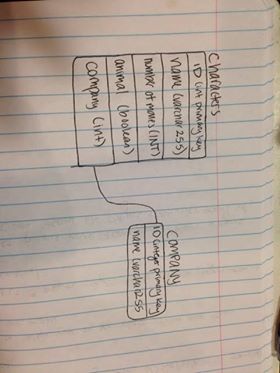 Characters
ID (int primary key
name (varchar 255)
number of movies (INT)
animal (boolean)
company (int)
Company
ID (integer primary key
name (varchar 255